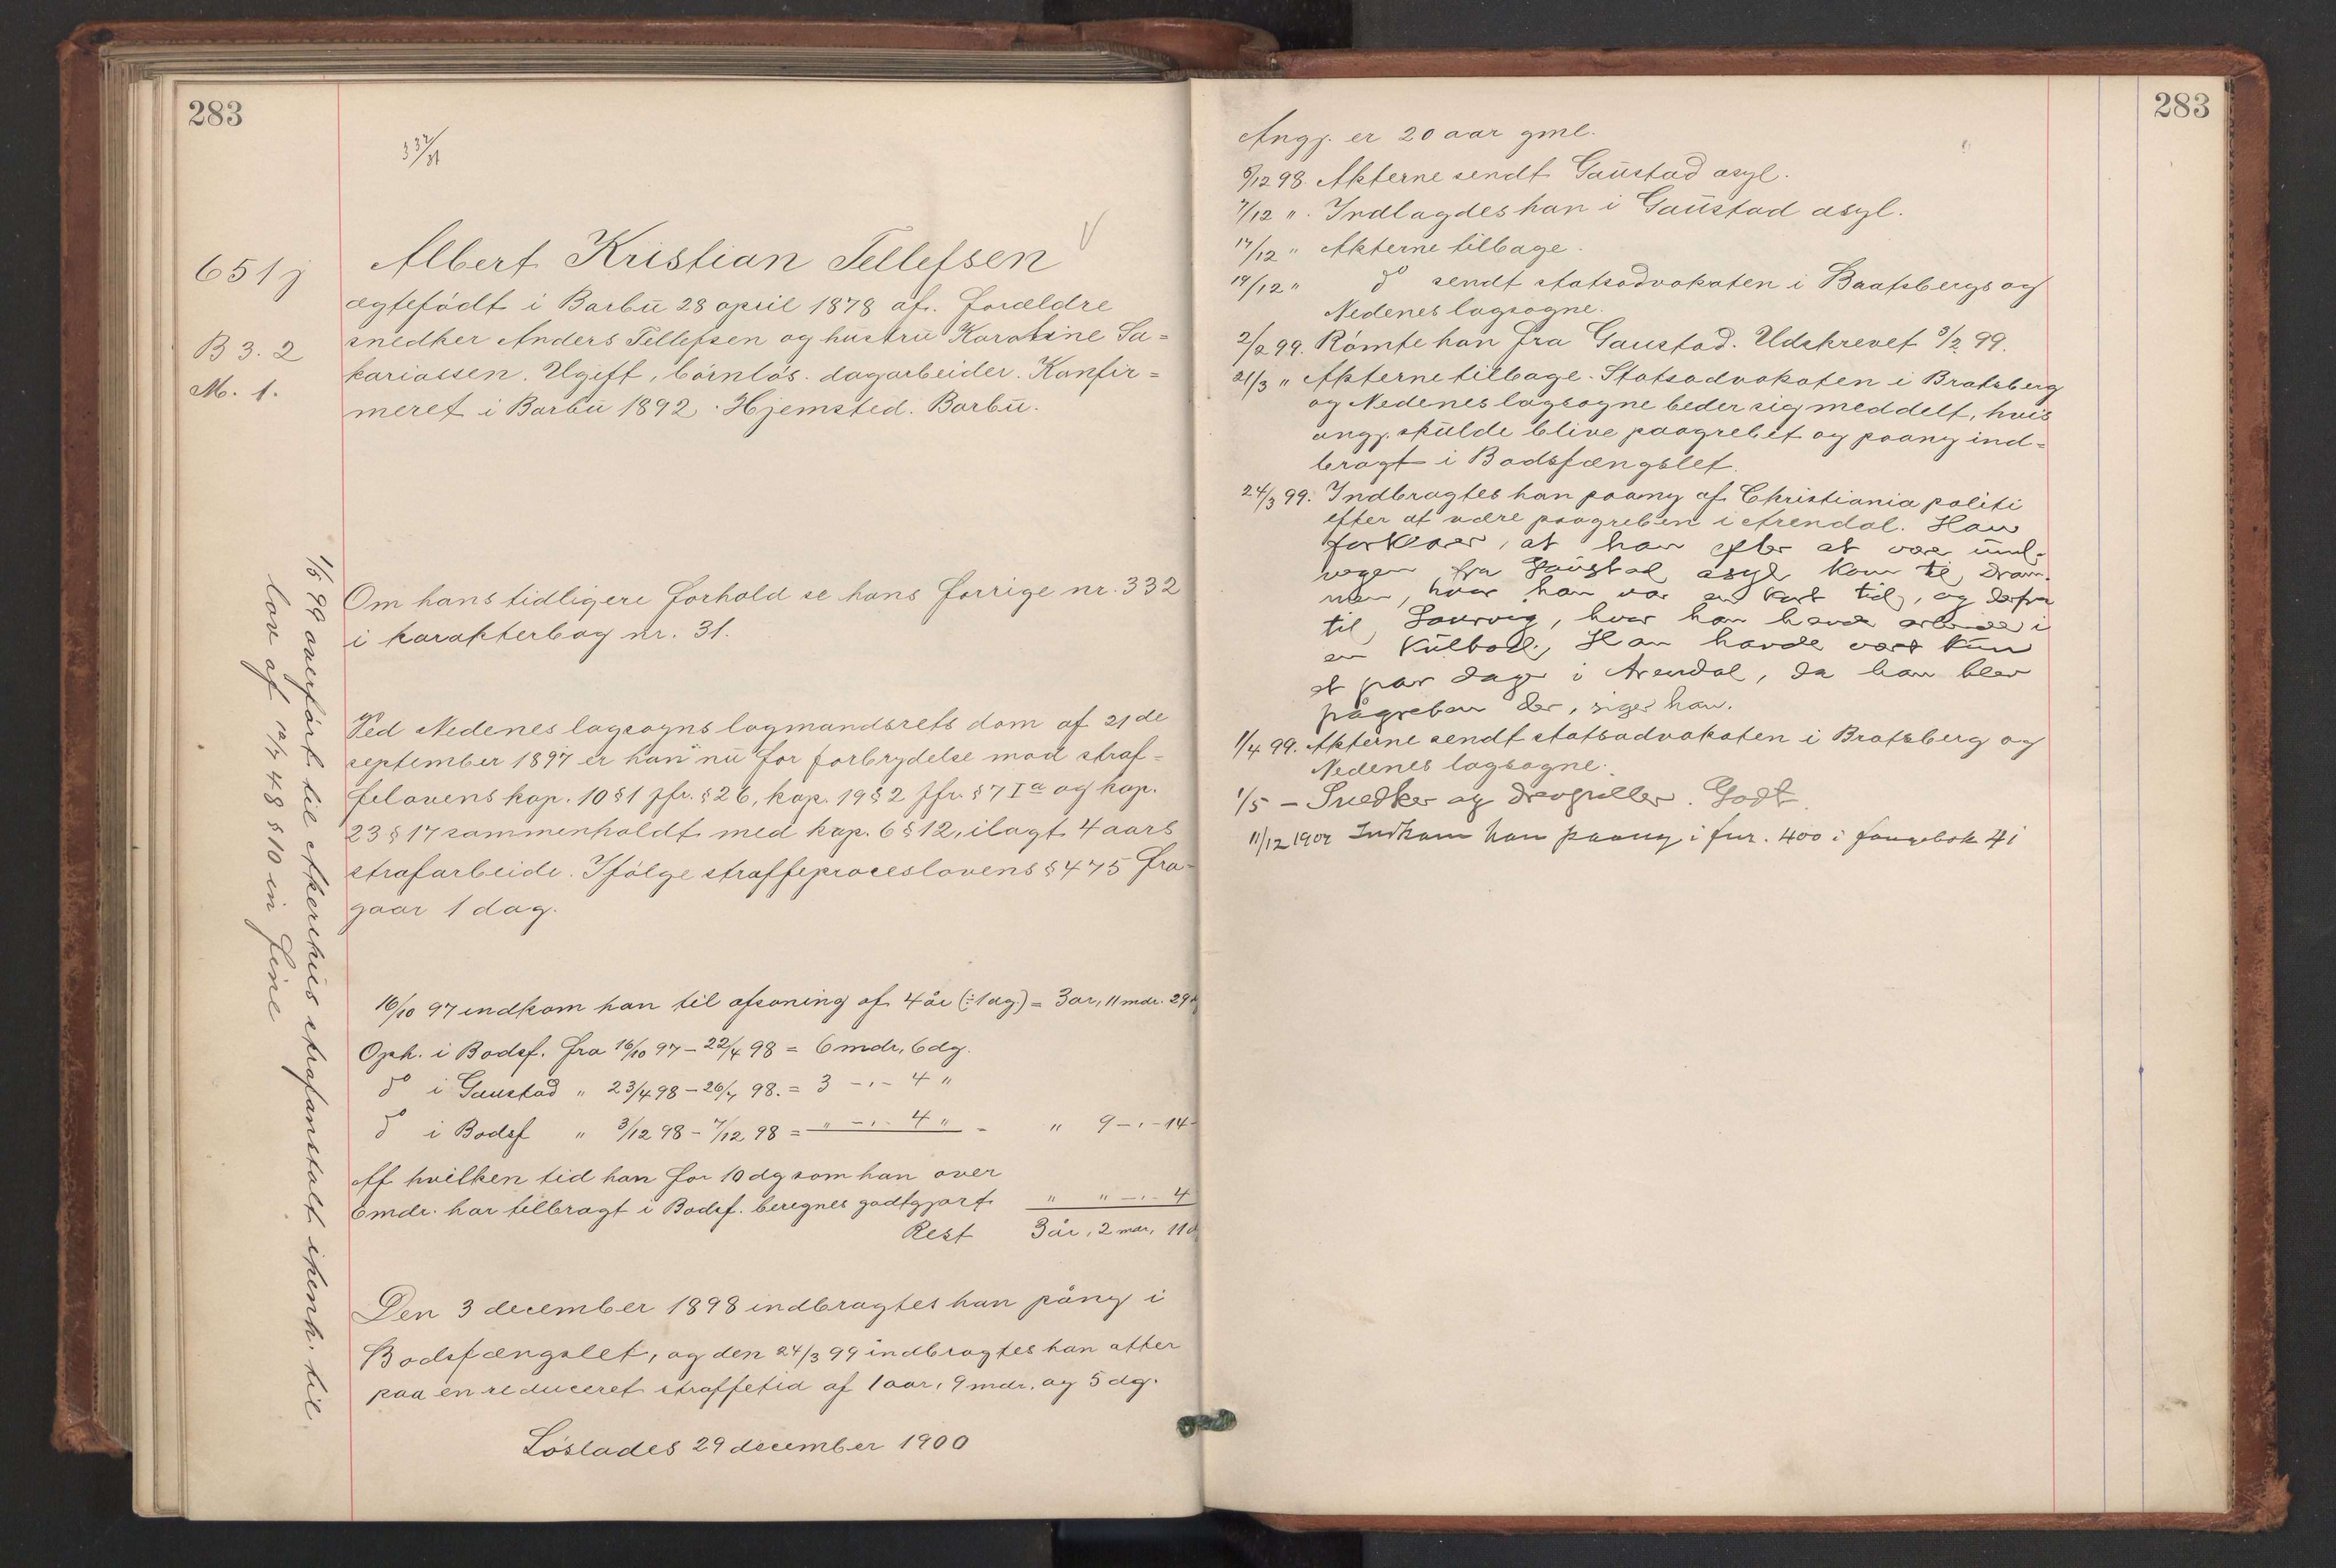 283
332/31
Albert Kristian Tellefsen
651 j
ægtefödt i Barbu 28 april 1878 af forældre
snedker Anders Tellefsen og hustru Karoline Sa=
B 3. 2
kariassen. Ugift, börnlös. dagarbeider. Konfir=
M. 1.
meret i Barbu 1892. Hjemsted. Barbu.
Om hans tidligere forhold se hans forrige nr. 332
i karakterbog nr. 31.
Ved Nedenes lagsogns lagmandsrets dom af 21de
september 1897 er han nu for forbrydelse mod straf=
felovens kap. 10 § 1 jfr. § 26, kap. 19 § 2 jfr. § 7 I a og kap.
23 § 17 sammenholdt med kap. 6 § 12, ilagt 4 aars
strafarbeide. Ifölge straffeproceslovens § 475 fra-
gaar 1 dag.
16/10 97 indkom han til afsoning af 4 år (÷ 1 dg.) = 3 ar, 11 mdr. 29 d
Oph. i Bodsf. fra 16/10 97 – 22/4 98 = 6 mdr, 6 dg.
do i Gaustad " 23/4 98 – 26/7 98. = 3 -"- 4 "
do i Bodsf " 3/12 98 – 7/12 98 = " -"- 4 " = " 9 -"- 14
Af hvilken tid han for 10 dg som han over
6 mdr. har tilbragt i Bodsf. beregnes godtgjort " " -"- 4
Rest 3 år, 2 mdr, 11 d
Den 3 december 1898 indbragtes han påny i
Bodsfængslet, og den 24/3 99 indbragtes han atter
paa en reduceret straffetid af 1 aar, 9 mdr. og 5 dg.
Löslades 29 december 1900
1/5 99 overfört til Akershus strafanstalt i henh. til
lov af 12/7 48 § 10 in fine
283
Angj. er 20 aar gml.
5/12 98. Akterne sendt Gaustad asyl.
7/12 ". Indlagdes han i Gaustad asyl.
14/12 " Akterne tilbage.
19/12 " do sendt statsadvokaten i Bratsbergs og
Nedenes lagsogne.
2/2 99. Römte han fra Gaustad. Udskrevet 9/2 99.
21/3 " Akterne tilbage. Statsadvokaten i Bratsberg
og Nedenes lagsogne beder sig meddelt, hvis
angj. skulde blive paagrebet og paany ind=
bragt i Bodsfængslet.
24/3 99. Indbragtes han paany af Christiania politi
efter at være paagreben i Arendal. Han
forklarer, at han efter at være und-
vegen fra Gaustad asyl kom til Dram-
men, hvor han var en kort tid, og derfra
til Laurvig, hvor han havde arbeidet i
en Kulbod. Han havde vært kun
et par dage i Arendal, da han blev
pågreben der, siger han.
1/4 99. Akterne sendt statsadvokaten i Bratsberg og
Nedenes lagsogne.
1/5 – Snedker og . Godt.
11/12 1902 Indkom han paany i fnr. 400 i fangebok 41